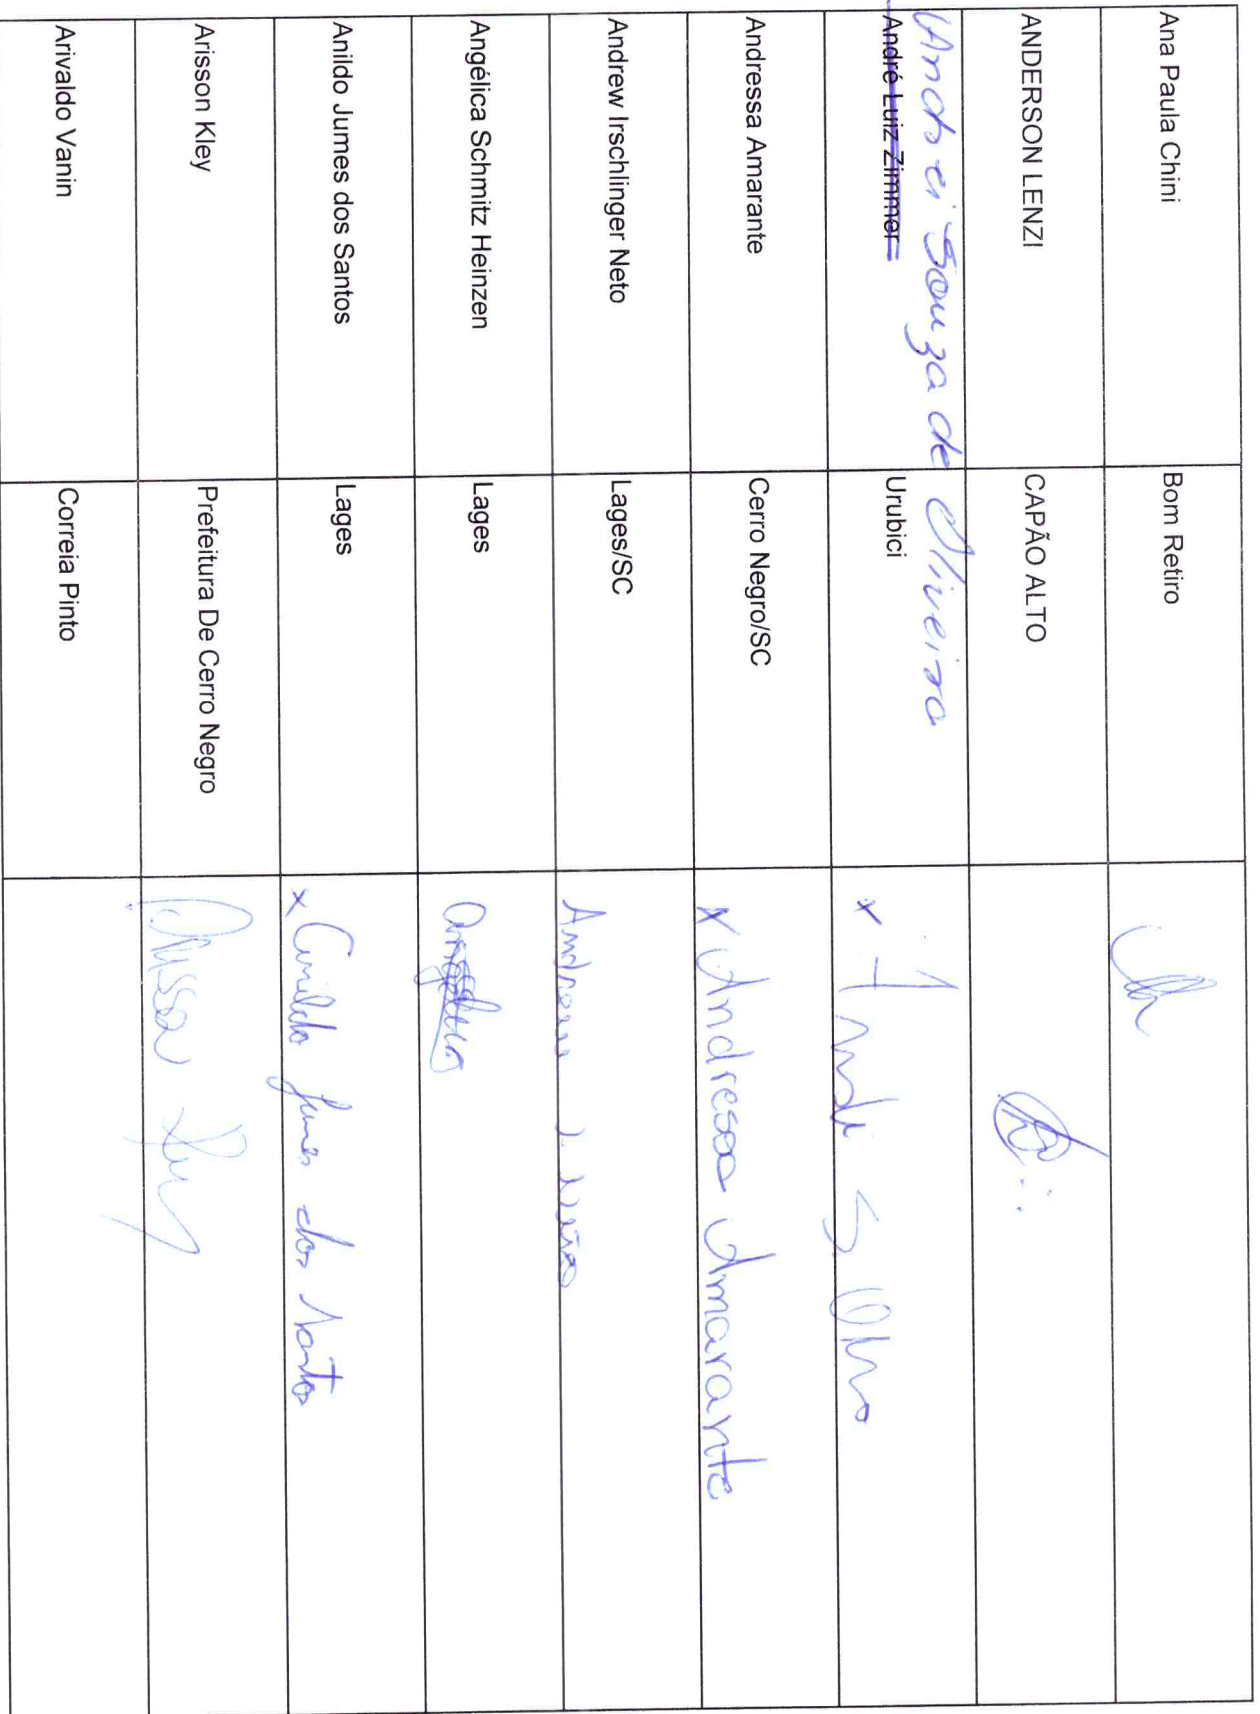 Ana Paula Chini Bom Retiro
ANDERSON LENZI CAPÃO ALTO
Andrei Souza de Oliveira
André Luiz Zimmer Urubici x
Andressa Amarante Cerro Negro/SC x Andressa Amarante
Andrew Irschlinger Neto Lages/SC Andrew I. Neto
Angélica Schmitz Heinzen Lages
Anildo Jumes dos Santos Lages x Anildo Jumes dos Santos
Arisson Kley Prefeitura De Cerro Negro
Arivaldo Vanin Correia Pinto